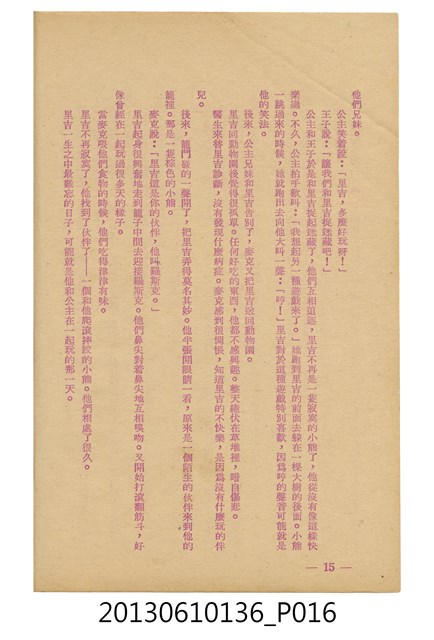 他們兄妹。
公主笑着說：「里吉，多麼好玩呀！」
王子說：「讓我們和里吉捉迷藏吧！」
公主和王子於是和里吉捉起迷藏了，他們互相追逐，里吉不再是一隻寂寞的小熊了，他從沒有像這樣快
樂過。不久，公主拍手歡叫：「我想起另一種遊戲來了。」她跑到里吉的前面去躱在一棵大樹的後面。小熊
一跳過來的時候，她就跑出去向他大叫一聲：「哼！」里吉對於這種遊戲特別喜歡，因爲哼的聲音可能就是
他的笑法。
後來，公主兄妹和里吉告別了，麥克又把里吉送回動物園。
里吉回動物園後覺得很孤單。任何好吃的東西，他都不感興趣。整天踡伏在草堆裡，暗自傷悲。
醫生來替里吉診斷，沒有發現什麼病症。麥克感到很惆悵，知道里吉的不快樂，是因爲沒有什麼玩的伴
兒。
後來，籠門砰的一聲開了，把里吉弄得莫名其妙。他半張開眼睛一看，原來是一個陌生的伙伴來到他的
籠裡。那是一隻棕色的小熊。
麥克說：「里吉這是你的伙伴，他叫羅斯克。」
里吉起身很興奮地走到籠子中間去迎接羅斯克。他們鼻尖對着鼻尖地互相嗅吻。又開始打滾翻筋斗，好
像曾經在一起玩過很多天的樣子。
當麥克喂他們食物的時候，他們吃得津津有味。
里吉不再寂寞了，他找到了伙伴了——一個和他爬滾摔跤的小熊。他們相處了很久。
里吉一生之中最難忘的日子，可能就是他和公主在一起玩的那一天。
— 15 —
20130610136_P016